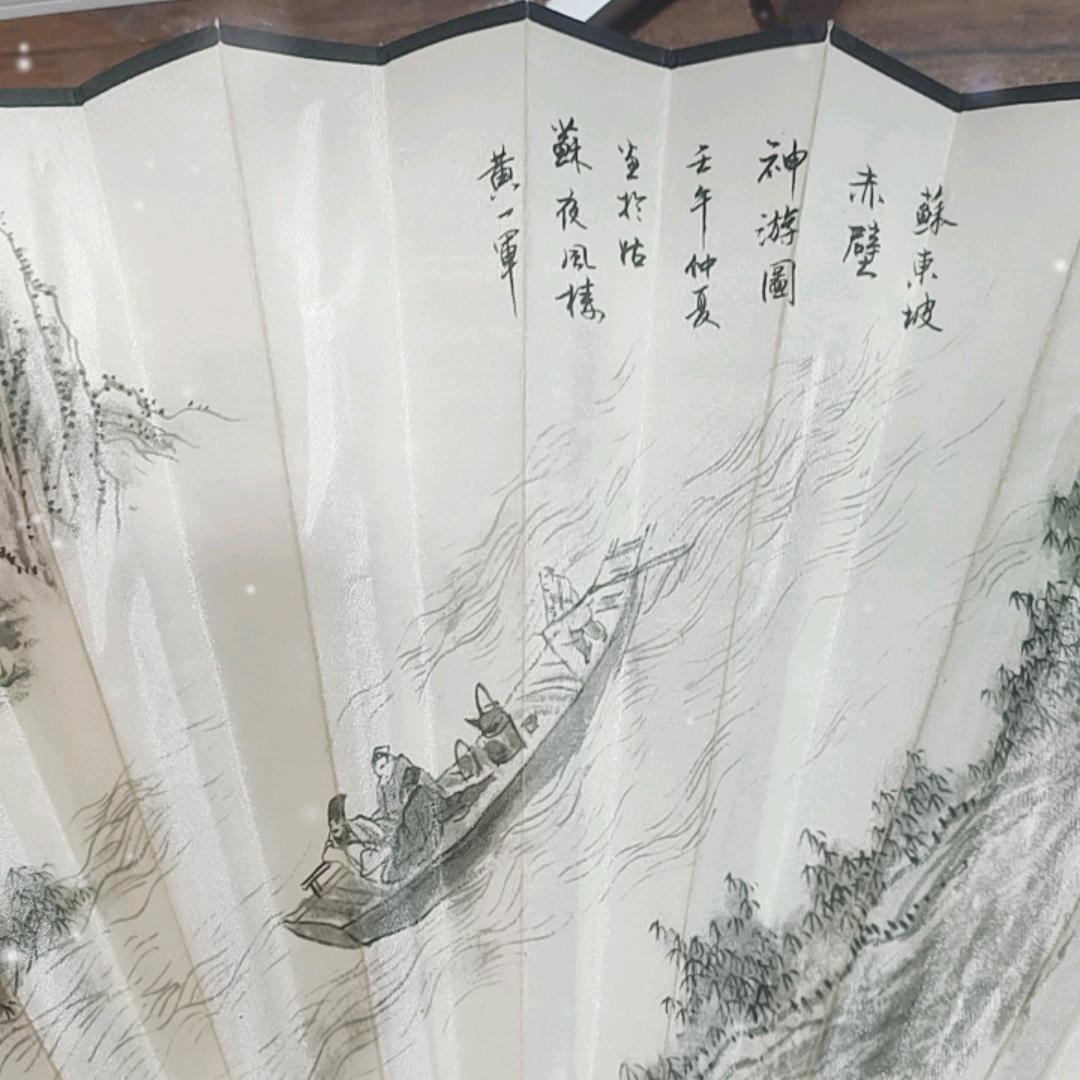 蘇東坡
赤壁
神游圖
壬午仲夏
畫於姑
蘇夜風樓
黄一軍